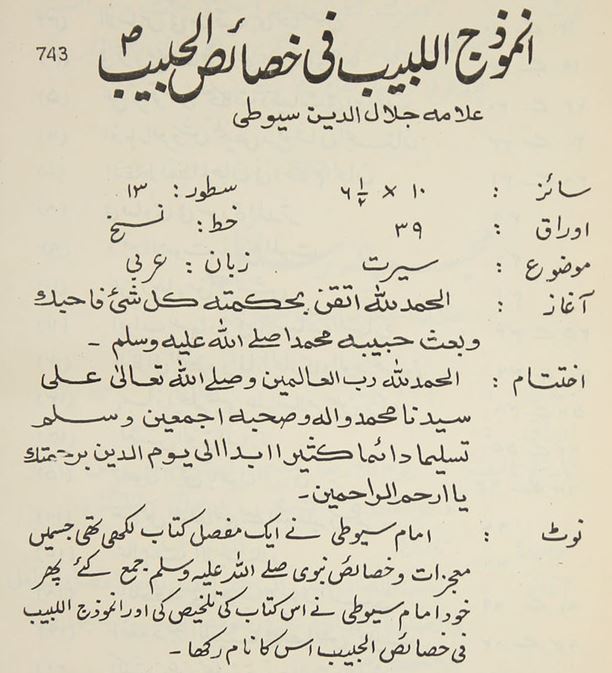 انموذج اللبیب فی خصائص الحبیبؐ
743
علامہ جلال الدین سیوطی
سائز : ۱۰ × ۶ ۱/۲ سطور: ۱۳
اوراق : ۳۹ خط: نسخ
موضوع : سیرت زبان: عربی
آغاز : الحمدللہ اتقن بحکمتہ کل شئ فاحبك
وبعث حبیبہ محمدا صلے اللہ علیہ وسلم ۔
اختتام : الحمدللہ رب العالمین وصلے اللہ تعالیٰ علی
سیدنا محمد والہ وصحبہ اجمعین وسلم
تسلیما دائما کثیرا ابدا الی یوم الدین برحمتك
یا ارحم الراحمین۔
نوٹ : امام سیوطی نے ایک مفصل کتاب لکھی تھی جسمیں
معجزات وخصائص نبوی صلے اللہ علیہ وسلم جمع کئے پھر
خود امام سیوطی نے اس کتاب کی تلخیص کی اور انموذج اللبیب
فی خصائص الحبیب اس کا نام رکھا ۔